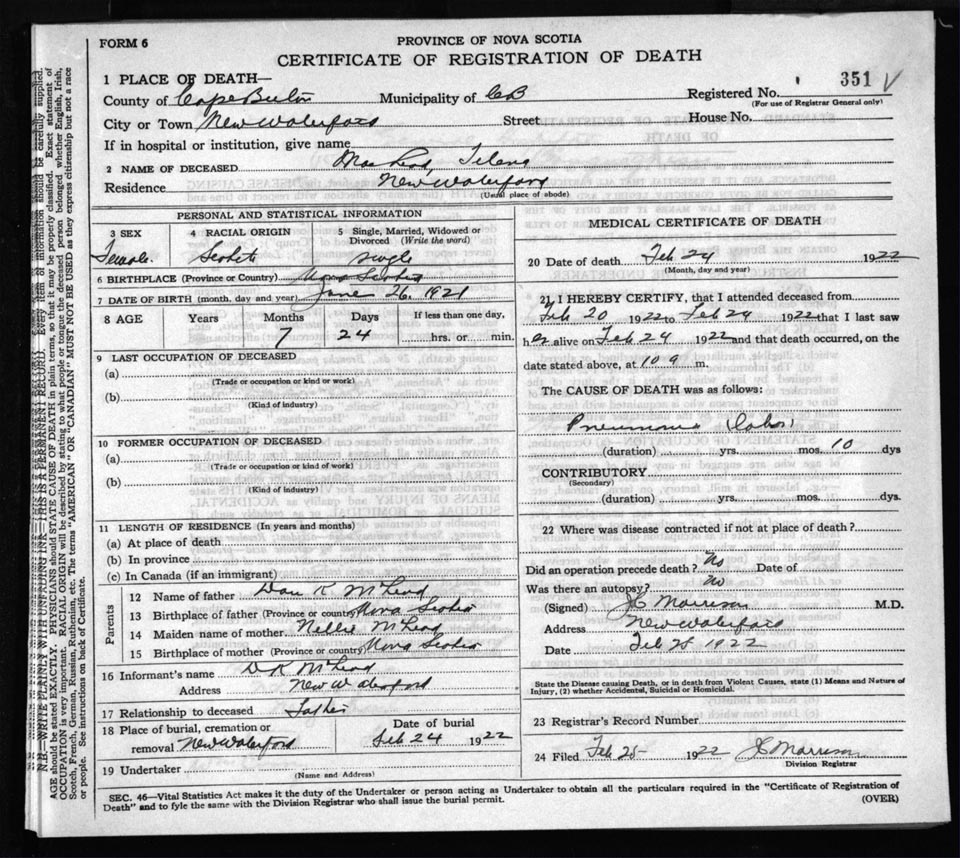 FORM 6
PROVINCE OF NOVA SCOTIA
CERTIFICATE OF REGISTRATION OF DEATH
1 PLACE OF DEATH—
Registered No. 351 √
(For use of Registrar General only)
County of Cape Breton Municipality of CB
City or Town New Waterford Street House No.
If in hospital or institution, give name
2 NAME OF DECEASED MacLeod,
Residence New Waterford
(Usual place of abode)
PERSONAL AND STATISTICAL INFORMATION
3 SEX 4 RACIAL ORIGIN 5 Single, Married, Widowed or Divorced (Write the word)
Female Scotch single
6 BIRTHPLACE (Province or Country) Nova Scotia
7 DATE OF BIRTH (month, day and year) June 26, 1921
8 AGE Years Months Days If less than one day,
7 24 hrs. or min.
9 LAST OCCUPATION OF DECEASED
(a)
(Trade or occupation or kind or work)
(b)
(Kind of industry)
10 FORMER OCCUPATION OF DECEASED
(a)
(Trade or occupation or kind or work)
(b)
(Kind of industry)
11 LENGTH OF RESIDENCE (In years and months)
(a) At place of death
(b) In province
(c) In Canada (if an immigrant)
Parents
12 Name of father Dan K McLeod
13 Birthplace of father (Province or country) Nova Scotia
14 Maiden name of mother Nellie McLeod
15 Birthplace of mother (Province or country) Nova Scotia
16 Informant's name D K McLeod
Address New Waterford
17 Relationship to deceased father
18 Place of burial, cremation or removal New Waterford
Date of burial
Feb 24 1922
19 Undertaker
(Name and Address)
MEDICAL CERTIFICATE OF DEATH
20 Date of death Feb 24 1922
(Month, day and year)
21 I HEREBY CERTIFY, that I attended deceased from
Feb 20 1922 to Feb 24 1922 that I last saw
her alive on Feb 24 1922 and that death occurred, on the
date stated above, at 10 a m.
The CAUSE OF DEATH was as follows:
Pneumonia (Lobar)
(duration) yrs. mos. 10 dys
CONTRIBUTORY
(Secondary)
(duration) yrs. mos. dys.
22 Where was disease contracted if not at place of death?
Did an operation precede death? No Date of
Was there an autopsy? No
(Signed) JC Morrison M.D.
Address New Waterford
Date Feb 25 1922
State the Disease causing Death, or in death from Violent Causes, state (1) Means and Nature of
Injury, (2) whether Accidental, Suicidal or Homicidal.
23 Registrar's Record Number
24 Filed Feb 25 1922 JC Morrison
Division Registrar
SEC. 46—Vital Statistics Act makes it the duty of the Undertaker or person acting as Undertaker to obtain all the particulars required in the "Certificate of Registration of
Death" and to fyle the same with the Division Registrar who shall issue the burial permit.
(OVER)
N.B.—WRITE PLAINLY WITH UNFADING INK—THIS IS A PERMANENT RECORD. Every item of information should be carefully supplied.
AGE should be stated EXACTLY. PHYSICIANS should STATE CAUSE OF DEATH in plain terms, so that it may be properly classified. Exact statement of
OCCUPATION is very important. RACIAL ORIGIN will be described by stating to what people or tongue the deceased person belonged whether English, Irish,
Scotch, French, German, Russian, Ruthenian, etc. The terms "AMERICAN" OR "CANADIAN" MUST NOT BE USED as they express citizenship but not a race
or people. See instructions on back of Certificate.